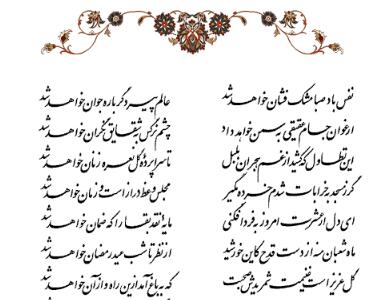 نفس باد صبا مشک فشان خواهد شد عالم پیر دگرباره جوان خواهد شد
ارغوان جام عقیقی به سمن خواهد داد چشم نرگس به شقایق نگران خواهد شد
این تطاول که کشید از غم هجران بلبل تا سراپرده گل نعره زنان خواهد شد
گر ز مسجد به خرابات شدم خرده مگیر مجلس وعظ دراز است و زمان خواهد شد
ای دل ار عشرت امروز به فردا فکنی مایه نقد بقا را که ضمان خواهد شد
ماه شعبان منه از دست قدح کاین خورشید از نظر تا شب عید رمضان خواهد شد
گل عزیز است غنیمت شمریدش صحبت که به باغ آمد از این راه و از آن خواهد شد